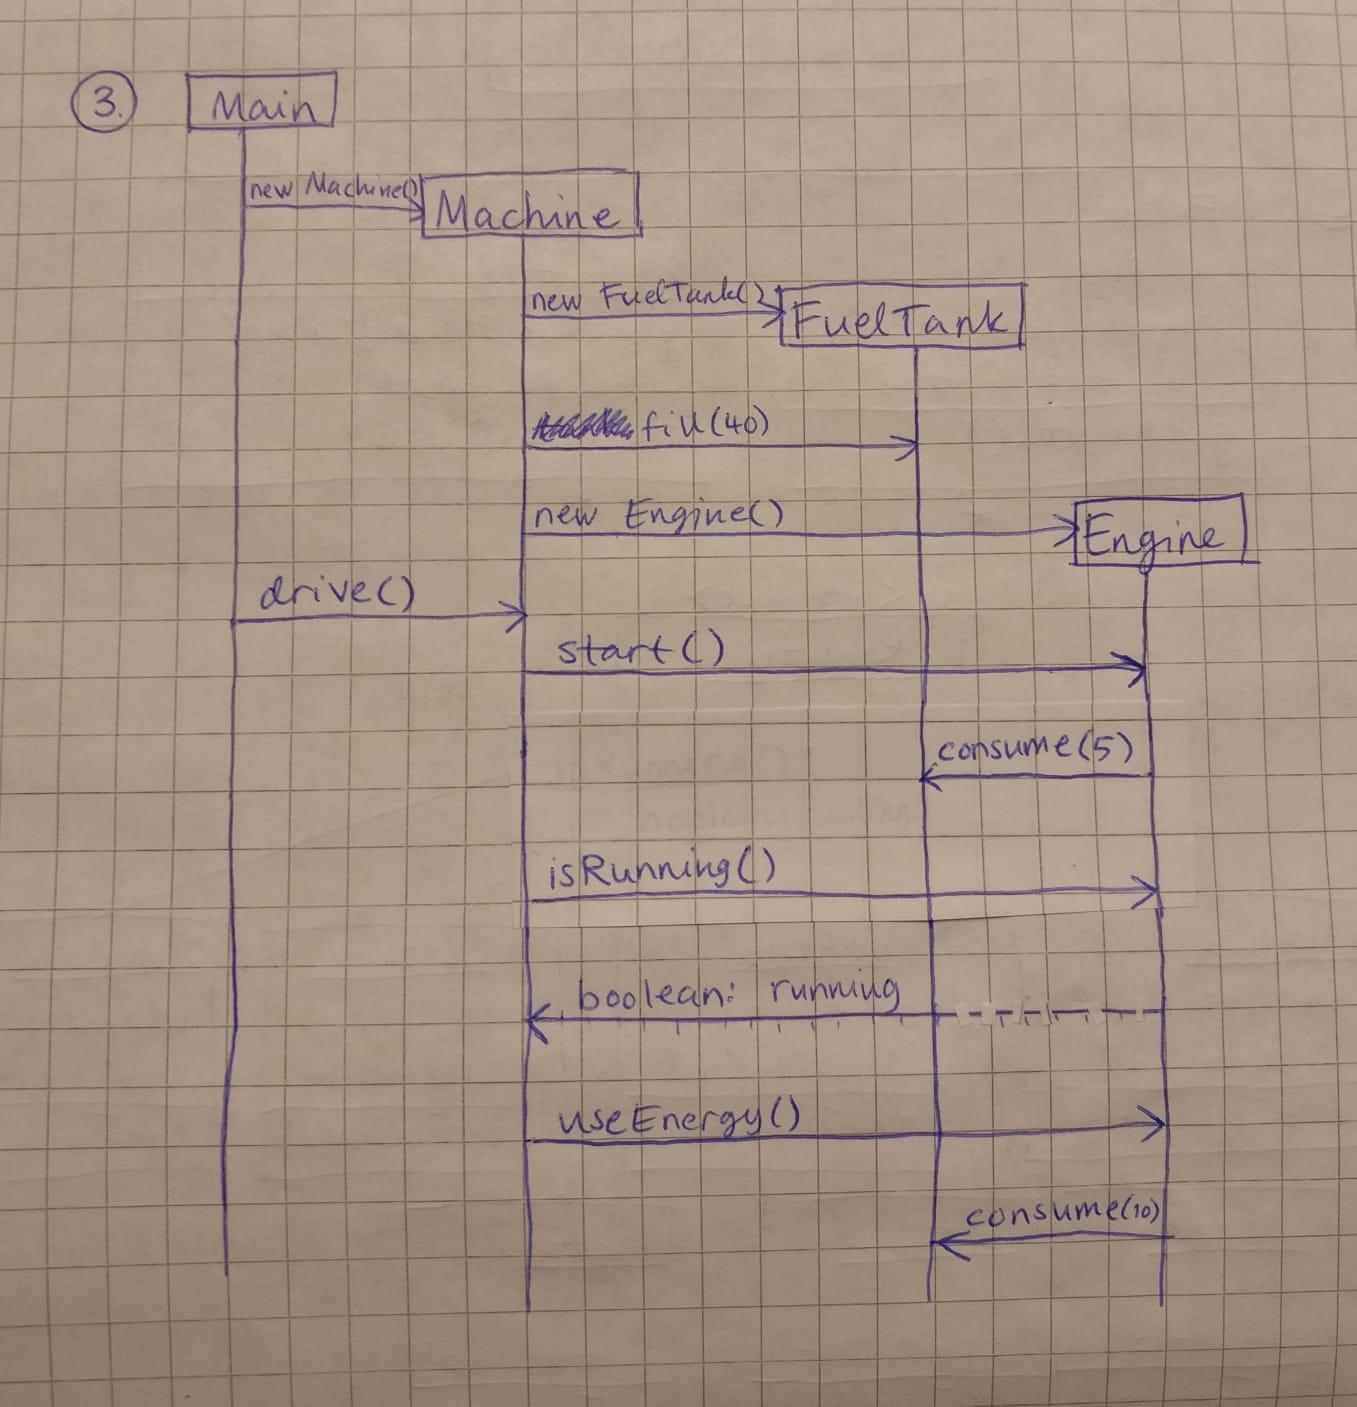 3.
Main
new Machine()
Machine
new FuelTank()
FuelTank
fill(40)
new Engine()
Engine
drive()
start()
consume(5)
isRunning()
boolean: running
useEnergy()
consume(10)